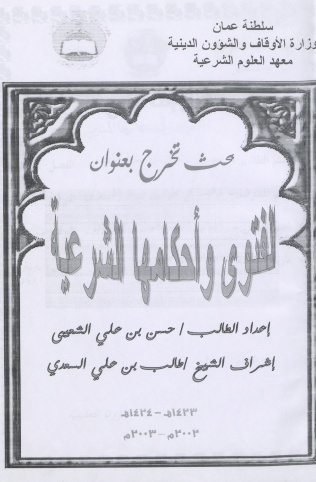 سلطنة عمان
وزارة الأوقاف والشؤون الدينية
معهد العلوم الشرعية
بحث تخرج بعنوان
الفتوى وأحكامها الشرعية
إعداد الطالب / حسن بن علي الشعيبي
إشراف الشيخ /طالب بن علي السعدي
١٤٢٣هـ - ١٤٢٤هـ
٢٠٠٢م - ٢٠٠٣م